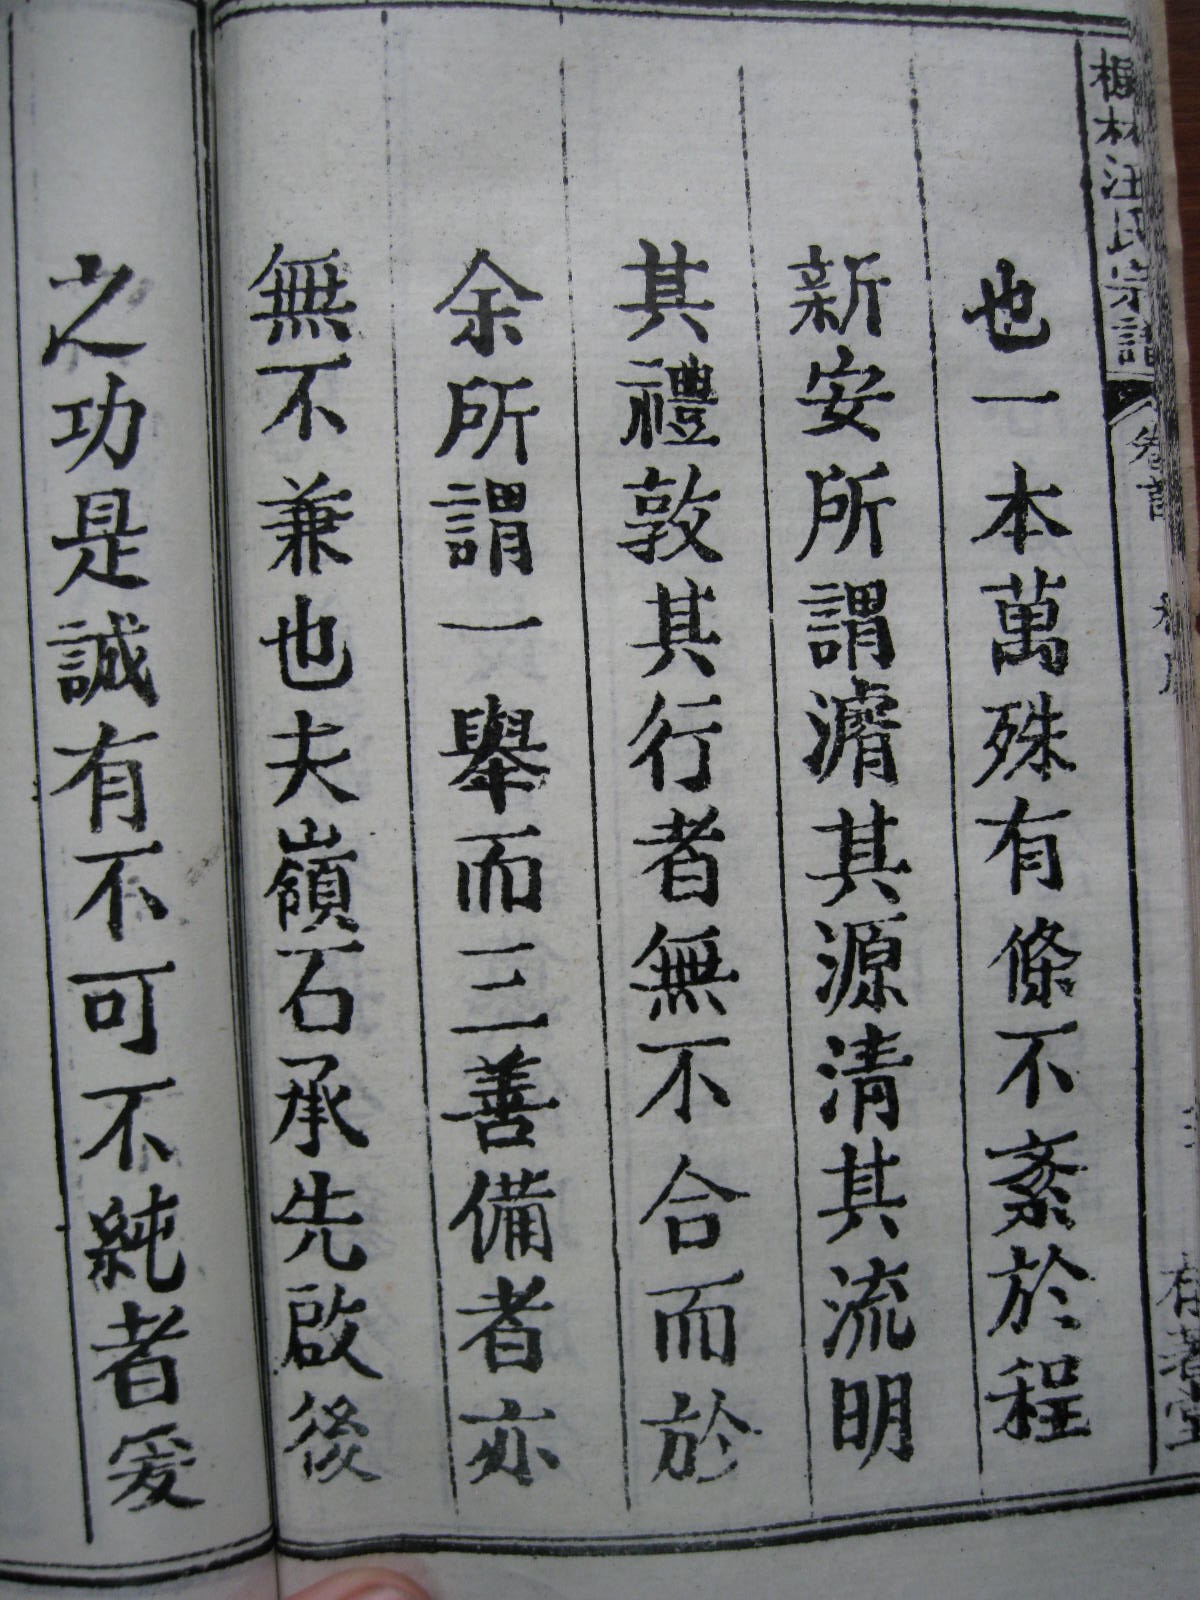 林汪氏宗譜
也一本萬殊有條不紊於程
新安所謂濬其源清其流明
其禮敦其行者無不合而於
余所謂一舉而三善備者亦
無不兼也夫嶺石承先啟後
之功是誠有不可不純者爰